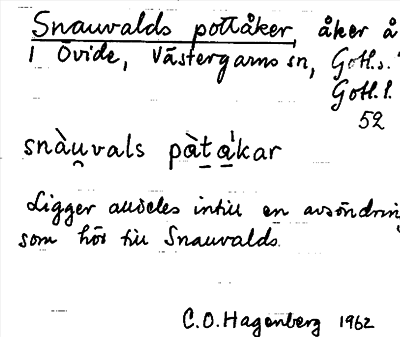 Snauvalds pottåker, åker å
i Övide, Västergarns sn, Gotl.s.
Gotl. l.
52
snàu̯vals pà̱tǻ̱kar
Ligger alldeles intill en avsöndrin
som hör till Snauvalds.
C.O. Hagenberg 1962